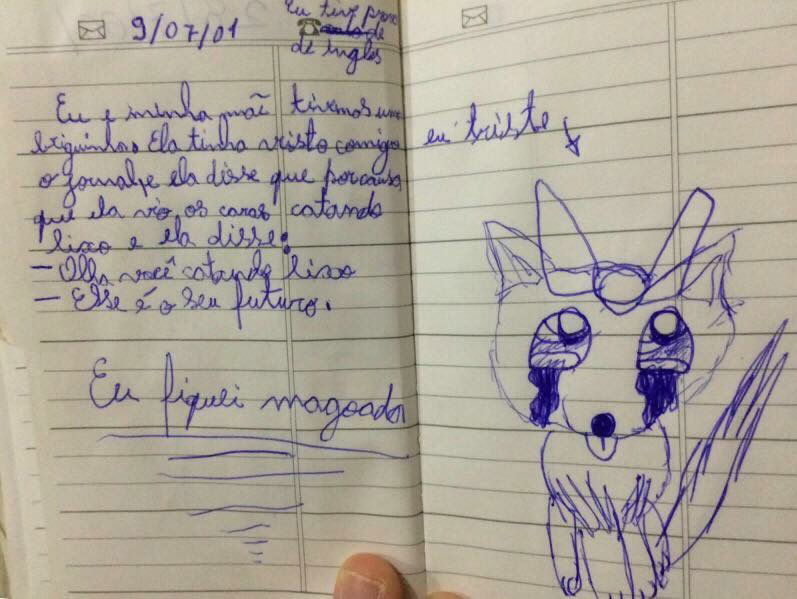 9/07/01
Eu tive prova
de
de ingles
Eu e minha mãi tivemos uma
briguinha Ela tinha visto comigo
o jornal, e ela disse que por causa
que ela viu os caras catando
lixo e ela disse:
— Olha você catando lixo
— Esse é o seu futuro.
Eu fiquei magoada
eu triste